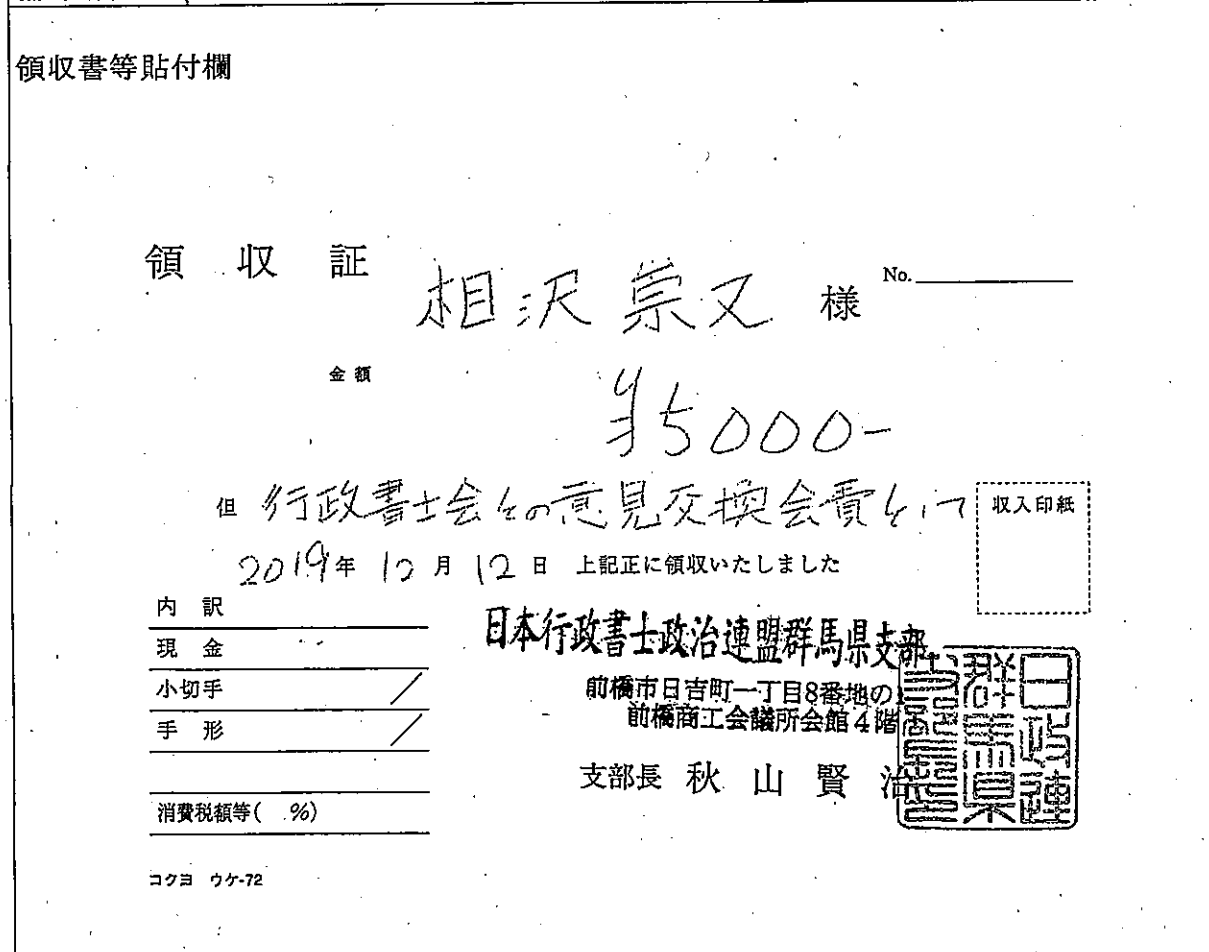 領収書等貼付欄
領収証 相沢崇文 様 No.
金額
¥5000-
但 行政書士会との意見交換会費として
収入印紙
2019年 12月 12日 上記正に領収いたしました
内訳
現金
小切手
手形
消費税額等( %)
日本行政書士政治連盟群馬県支部
前橋市日吉町一丁目8番地の1
前橋商工会議所会館4階
支部長 秋山賢治
コクヨ ウケ-72